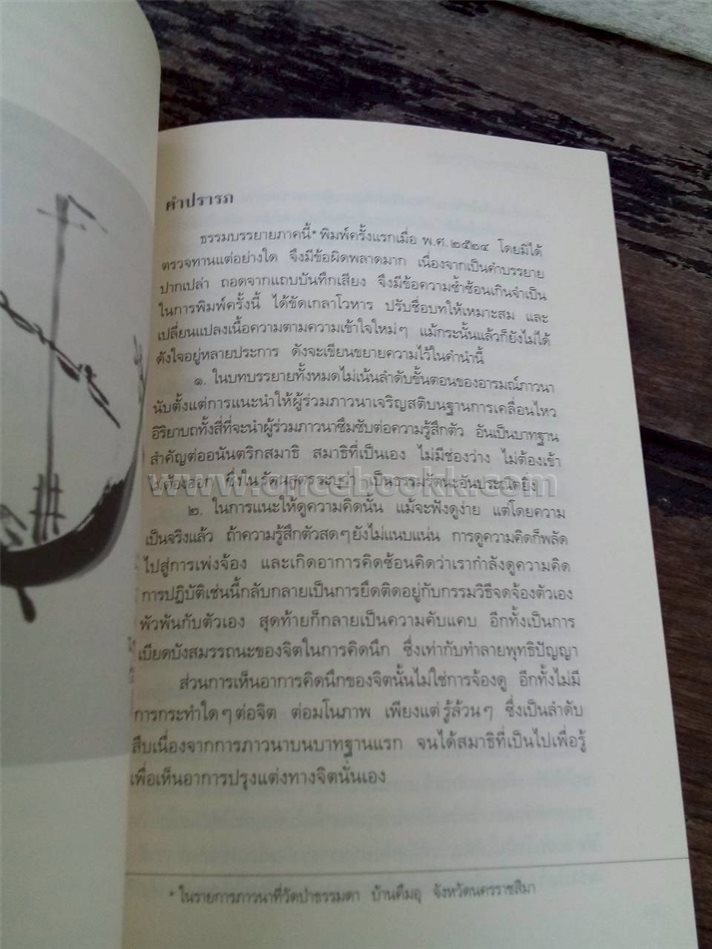 คำปรารภ
ธรรมบรรยายภาคนี้* พิมพ์ครั้งแรกเมื่อ พ.ศ. ๒๕๒๔ โดยมิได้
ตรวจทานแต่อย่างใด จึงมีข้อผิดพลาดมาก เนื่องจากเป็นคำบรรยาย
ปากเปล่า ถอดจากแถบบันทึกเสียง จึงมีข้อความซ้ำซ้อนเกินจำเป็น
ในการพิมพ์ครั้งนี้ ได้ขัดเกลาโวหาร ปรับชื่อบทให้เหมาะสม และ
เปลี่ยนแปลงเนื้อความตามความเข้าใจใหม่ๆ แม้กระนั้นแล้วก็ยังไม่ได้
ดังใจอยู่หลายประการ ดังจะเขียนขยายความไว้ในคำนำนี้
๑. ในบทบรรยายทั้งหมดไม่เน้นลำดับขั้นตอนของอารมณ์ภาวนา
นับตั้งแต่การแนะนำให้ผู้ร่วมภาวนาเจริญสติบนฐานการเคลื่อนไหว
อิริยาบถทั้งสี่ที่จะนำผู้ร่วมภาวนาซึมซับต่อความรู้สึกตัว อันเป็นบาทฐาน
สำคัญต่ออนันตริกสมาธิ สมาธิที่เป็นเอง ไม่มีช่องว่าง ไม่ต้องเข้า
ไม่ต้องออก ซึ่งในรัตนสูตรระบุว่า เป็นธรรมรัตนะอันประณีตยิ่ง
www.oncebookk.com
๒. ในการแนะให้ดูความคิดนั้น แม้จะฟังดูง่าย แต่โดยความ
เป็นจริงแล้ว ถ้าความรู้สึกตัวสดๆ ยังไม่แนบแน่น การดูความคิดก็พลัด
ไปสู่การเพ่งจ้อง และเกิดอาการคิดซ้อนคิดว่าเรากำลังดูความคิด
การปฏิบัติเช่นนี้กลับกลายเป็นการยึดติดอยู่กับกรรมวิธีจดจ้องตัวเอง
พัวพันกับตัวเอง สุดท้ายก็กลายเป็นความคับแคบ อีกทั้งเป็นการ
เบียดบังสมรรถนะของจิตในการคิดนึก ซึ่งเท่ากับทำลายพุทธิปัญญา
ส่วนการเห็นอาการคิดนึกของจิตนั้นไม่ใช่การจ้องดู อีกทั้งไม่มี
การกระทำใดๆ ต่อจิต ต่อมโนภาพ เพียงแต่รู้ล้วนๆ ซึ่งเป็นลำดับ
สืบเนื่องจากการภาวนาบนบาทฐานแรก จนได้สมาธิที่เป็นไปเพื่อรู้
เพื่อเห็นอาการปรุงแต่งทางจิตนั่นเอง
* ในรายการภาวนาที่วัดป่าธรรมดา บ้านคึมอุ จังหวัดนครราชสีมา